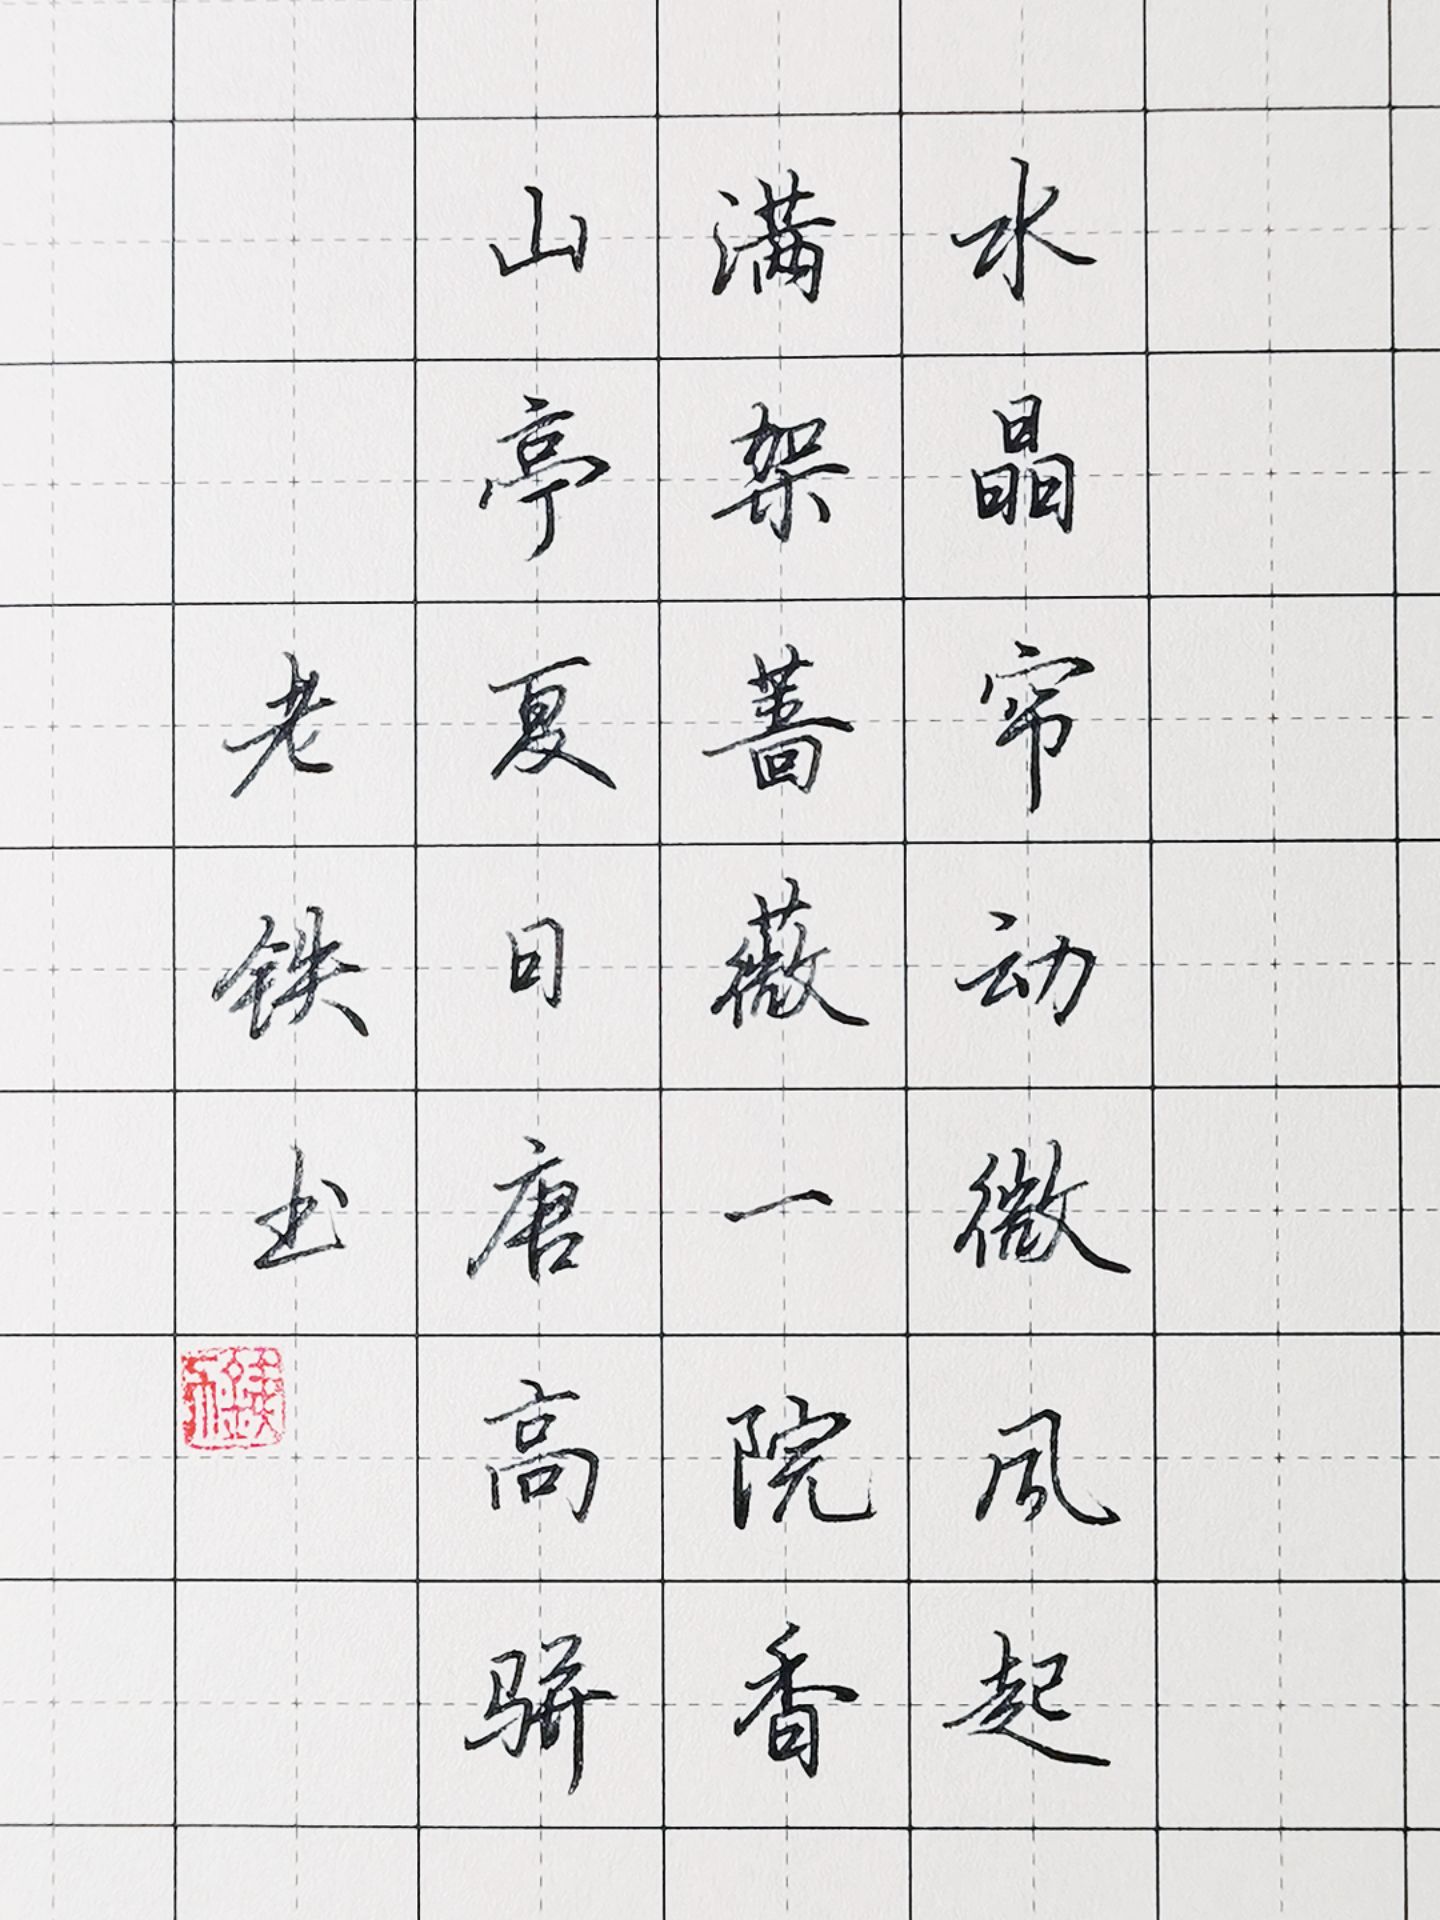 水晶帘动微风起
满架蔷薇一院香
山亭夏日唐高骈
老铁书